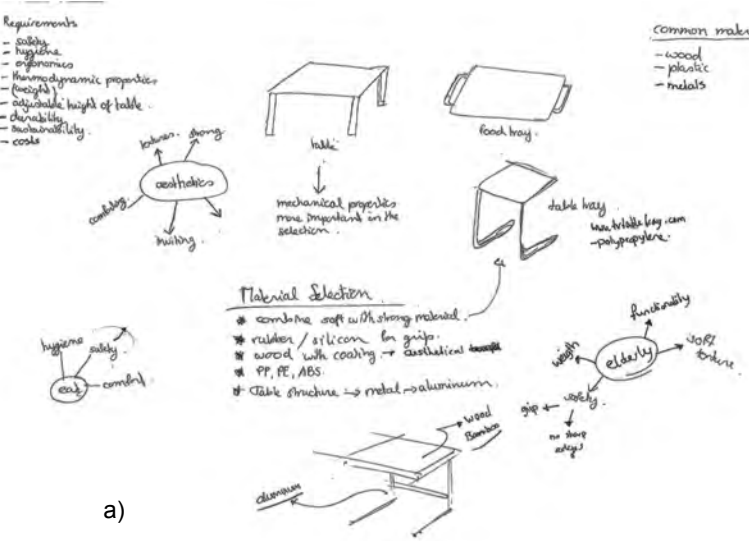 Requirements
- safety
- hygiene
- ergonomics
- thermodynamic properties
- (weight)
- adjustable height of table.
- durability
- sustainability.
- costs
common mater
- wood
- plastic
- metals
table
food tray.
textures.
strong
aesthetics
inviting.
mechanical properties
more important in the
selection.
table tray.
- polypropylene.
Material Selection.
* combine soft with strong material.
* rubber / silicon for grip.
* wood with coating → aesthetical
* PP, PE, ABS.
* Table structure → metal → aluminum.
hygiene
safety
eat
comfort
functionality
weight
elderly
soft
texture.
safety.
grip
no sharp
edges
wood
Bamboo
aluminum
a)